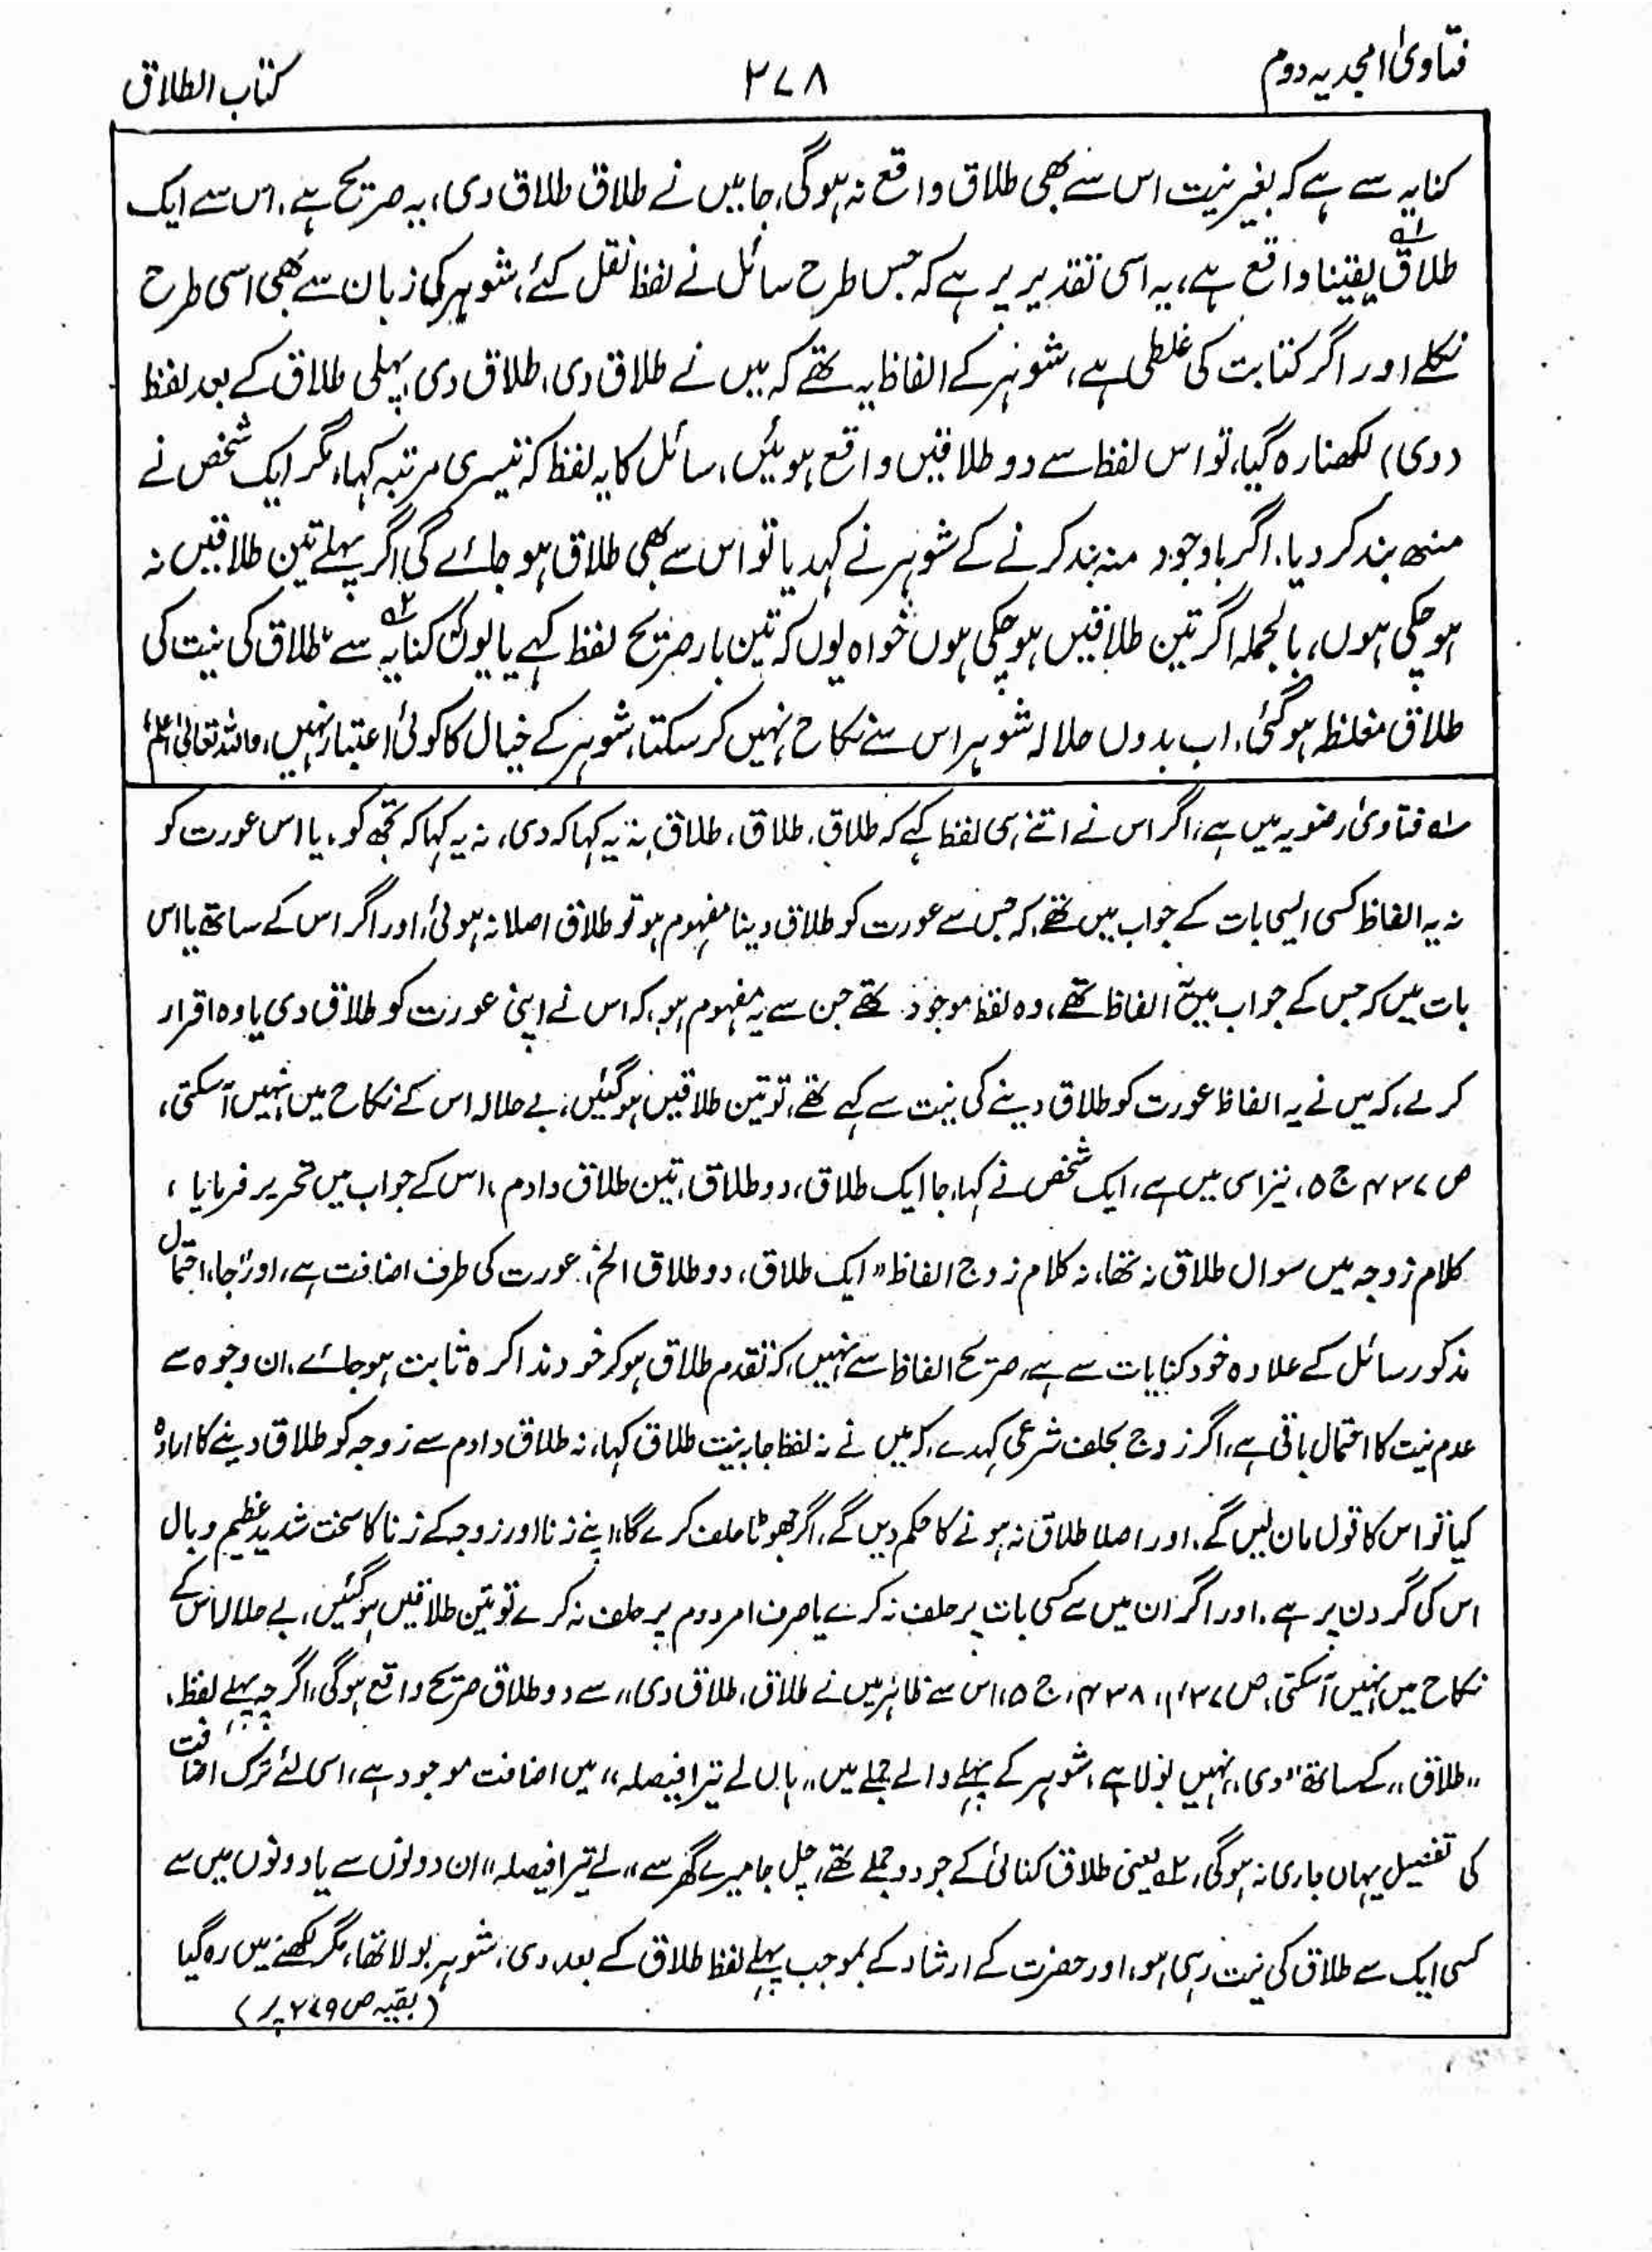 فتاویٰ امجدیہ دوم
۲۷۸
کتاب الطلاق
کنایہ سے ہے کہ بغیر نیت اس سے بھی طلاق واقع نہ ہوگی، جا میں نے طلاق طلاق دی، یہ صریح ہے۔ اس سے ایک
طلاق۱؎ یقینا واقع ہے، یہ اسی تقدیر پر ہے کہ جس طرح سائل نے لفظ نقل کئے، شوہر کی زبان سے بھی اسی طرح
نکلے اور اگر کتابت کی غلطی ہے، شوہر کے الفاظ یہ تھے کہ میں نے طلاق دی، طلاق دی، پہلی طلاق کے بعد لفظ
(دی) لکھنا رہ گیا، تو اس لفظ سے دو طلاقیں واقع ہوئیں، سائل کا یہ لفظ کہ تیسری مرتبہ کہا، مگر ایک شخص نے
منھ بند کر دیا۔ اگر باوجود منہ بند کرنے کے شوہر نے کہدیا تو اس سے بھی طلاق ہو جائے گی اگر پہلے تین طلاقیں نہ
ہو چکی ہوں، بالجملہ اگر تین طلاقیں ہو چکی ہوں خواہ یوں کہ تین بار صریح لفظ کہے یا یوں کہ کنایہ۲؎ سے طلاق کی نیت کی
طلاق مغلظہ ہو گئی، اب بدوں حلالہ شوہر اس سے نکاح نہیں کر سکتا، شوہر کے خیال کا کوئی اعتبار نہیں، واللہ تعالیٰ اعلم
۱؎ فتاویٰ رضویہ میں ہے، اگر اس نے اتنے ہی لفظ کہے کہ طلاق، طلاق، طلاق، نہ یہ کہا کہ دی، نہ یہ کہا کہ تجھ کو، یا اس عورت کو
نہ یہ الفاظ کسی ایسی بات کے جواب میں تھے، کہ جس سے عورت کو طلاق دینا مفہوم ہو تو طلاق اصلا نہ ہوئی، اور اگر اس کے ساتھ یا اس
بات میں کہ جس کے جواب میں یہ الفاظ تھے، وہ لفظ موجود تھے جن سے یہ مفہوم ہو، کہ اس نے اپنی عورت کو طلاق دی یا وہ اقرار
کرے، کہ میں نے یہ الفاظ عورت کو طلاق دینے کی نیت سے کہے تھے، تو تین طلاقیں ہو گئیں، بے حلالہ اس کے نکاح میں نہیں آ سکتی،
ص ۴۳۷ ج ۵، نیز اسی میں ہے، ایک شخص نے کہا، جا ایک طلاق، دو طلاق، تین طلاق دادم، اس کے جواب میں تحریر فرمایا،
کلام زوجہ میں سوال طلاق نہ تھا، نہ کلام زوج الفاظ "ایک طلاق، دو طلاق الخ، عورت کی طرف اضافت ہے، اور "جا، احتمال
مذکور سائل کے علاوہ خود کنایات سے ہے، صریح الفاظ سے نہیں، کہ تقدم طلاق ہو کر خود مذاکرہ ثابت ہو جائے، ان وجوہ سے
عدم نیت کا احتمال باقی ہے، اگر زوج بحلف شرعی کہدے، کہ میں نے نہ لفظ جا بہ نیت طلاق کہا، نہ طلاق دادم سے زوجہ کو طلاق دینے کا ارادہ
کیا تو اس کا قول مان لیں گے، اور اصلا طلاق نہ ہونے کا حکم دیں گے، اگر جھوٹا حلف کرے گا، اپنے زنا اور زوجہ کے زنا کا سخت شدید عظیم وبال
اس کی گردن پر ہے، اور اگر ان میں سے کسی بات پر حلف نہ کرے یا صرف امر دوم پر حلف نہ کرے تو تین طلاقیں ہو گئیں، بے حلالہ اس کے
نکاح میں نہیں آ سکتی، ص ۴۳۷، ۴۳۸، ج ۵، اس سے ظاہر میں نے طلاق، طلاق دی،، سے دو طلاق صریح واقع ہوگی، اگرچہ پہلے لفظ،
"طلاق،، کے ساتھ "دی،، نہیں بولا ہے، شوہر کے پہلے والے جملے میں،، ہاں لے تیرا فیصلہ،، میں اضافت موجود ہے، اسی لئے ترک اضافت
کی تفصیل یہاں جاری نہ ہوگی، ۲؎ یعنی طلاق کنائی کے جو دو جملے تھے، چل جا میرے گھر سے،، لے تیرا فیصلہ،، ان دونوں سے یا دونوں میں سے
کسی ایک سے طلاق کی نیت رہی ہو، اور حضرت کے ارشاد کے بموجب پہلے لفظ طلاق کے بعد دی، شوہر بولا تھا، مگر لکھنے میں رہ گیا
(بقیہ ص ۲۷۹ پر)